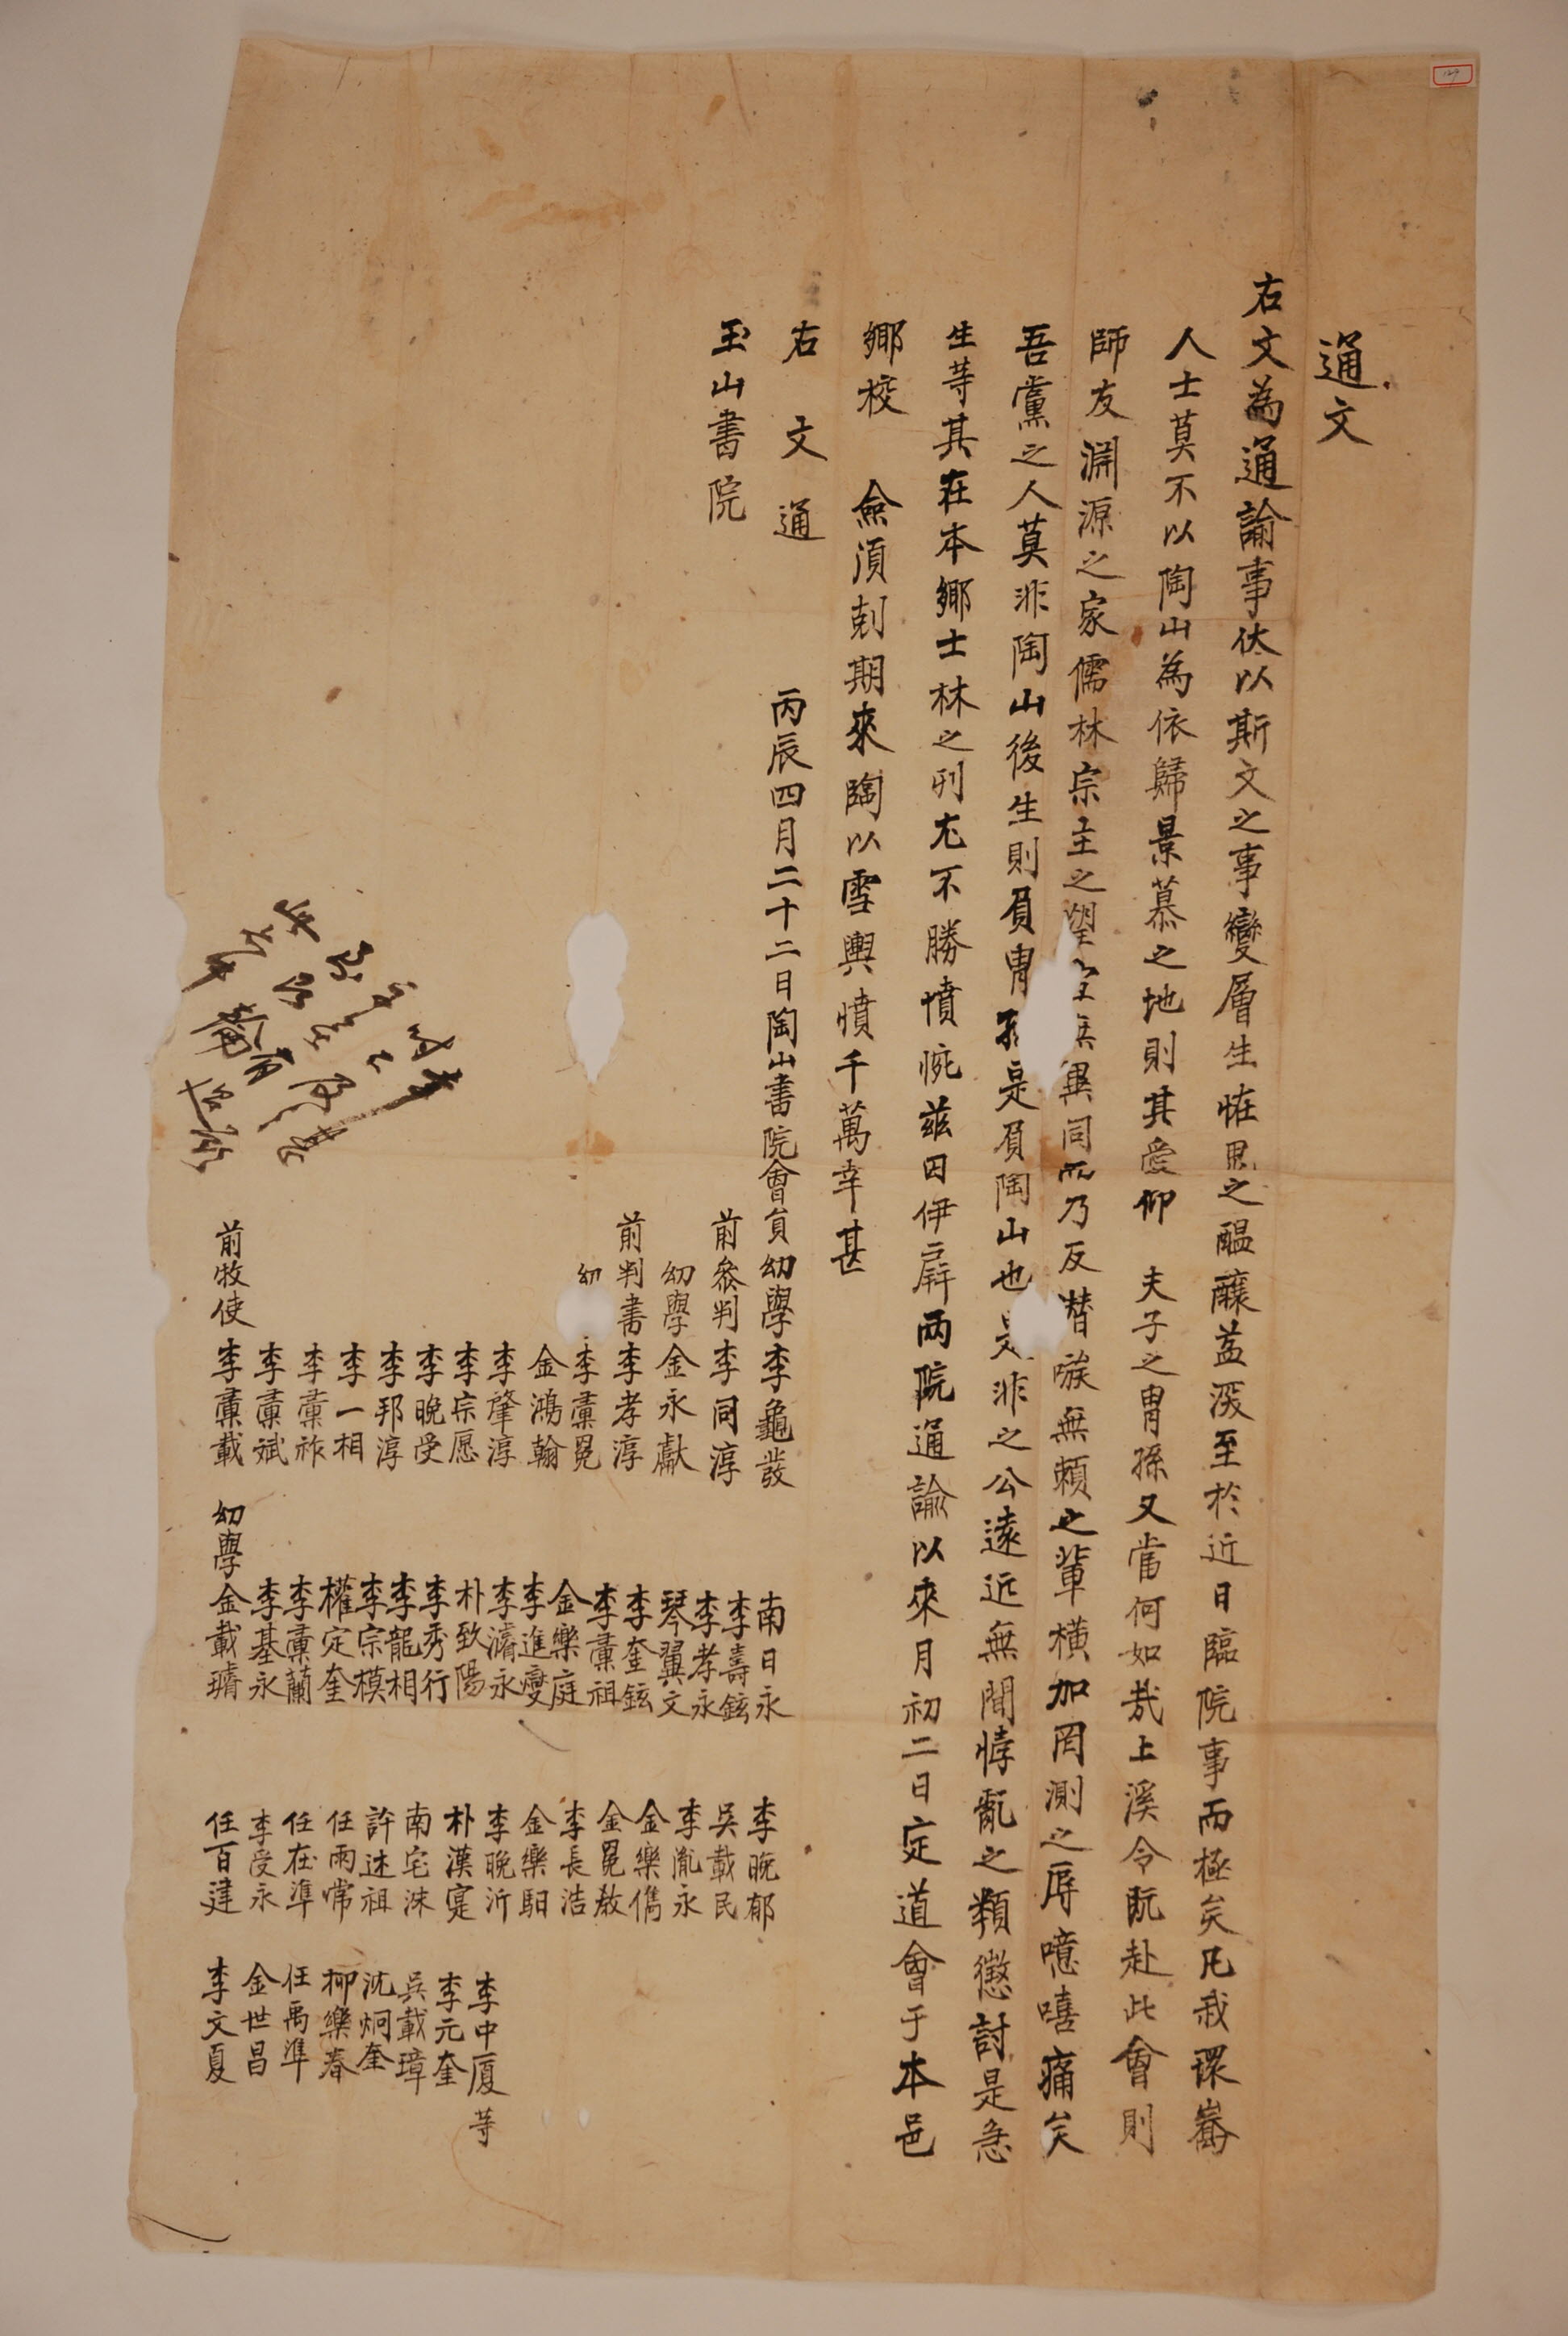 通文
右文為通諭事伏以斯文之事變層生恠鬼之醞釀益深至於近日臨院事而極矣凡我環嶠
人士莫不以陶山為依歸景慕之地則其愛仰 夫子之胄孫又當何如哉上溪令既赴此會則
師友淵源之家儒林宗主之望宜無異同而乃反潛嗾無賴之輩橫加罔測之辱噫嘻痛矣
吾黨之人莫非陶山後生則負胄孫是負陶山也是非之公遠近無間悖亂之類懲討是急
生等其在本鄉士林之列尤不勝憤惋玆因伊屛兩院通諭以來月初二日定道會于本邑
鄉校 僉須剋期來陶以雪輿憤千萬幸甚
右文通
玉山書院
丙辰四月二十二日陶山書院會員幼學李龜發
南日永
李晚郁
前參判李同淳
李壽鉉
吳載民
幼學金永獻
李孝永
李胤永
前判書李孝淳
琴翼文
金樂儁
幼 李彙冕
李奎鉉
金冕敎
金鴻翰
李彙祖
李長浩
李肇淳
金樂庭
金樂馹
李宗愿
李進燮
李晚沂
李中廈等
李晚受
李濬永
朴漢寔
李元奎
李邦淳
朴致陽
南宅洙
吳載璋
李一相
李秀行
許述祖
沈炯奎
李彙祚
李龍相
任雨常
柳樂春
李彙斌
李宗模
任在準
任禹準
前牧使李彙載
權定奎
李受永
金世昌
李彙蘭
任百建
李文夏
李基永
幼學金載璿